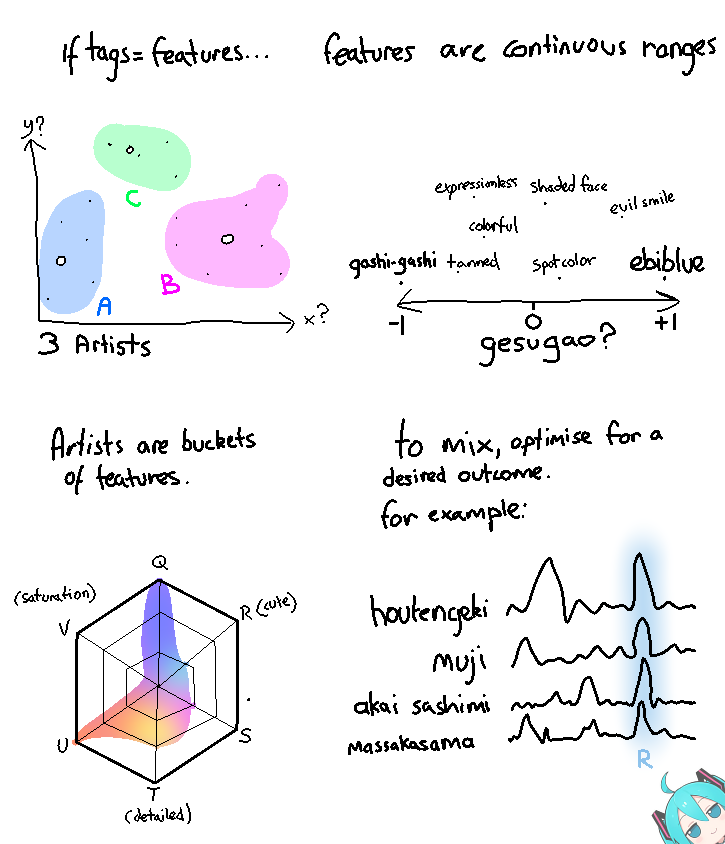 If tags = features...
features are continuous ranges
y?
C
A
B
x?
3 Artists
expressionless shaded face
evil smile
colorful
gashi-gashi tanned spot color ebiblue
-1 0 +1
gesugao?
Artists are buckets
of features.
to mix, optimise for a
desired outcome.
for example:
Q
(saturation)
R (cute)
V
U
S
T
(detailed)
houtengeki
muji
akai sashimi
massakasama
R